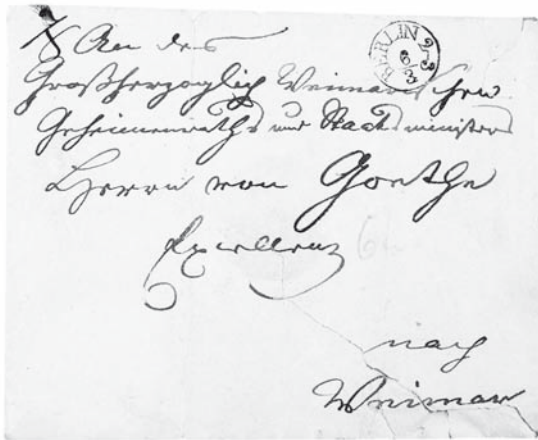 An des
BERLIN 2-3 6/3
Großherzoglich Weimarschen
Geheimenraths und Staatsministers
Herrn von Goethe
Excellenz
nach
Weimar